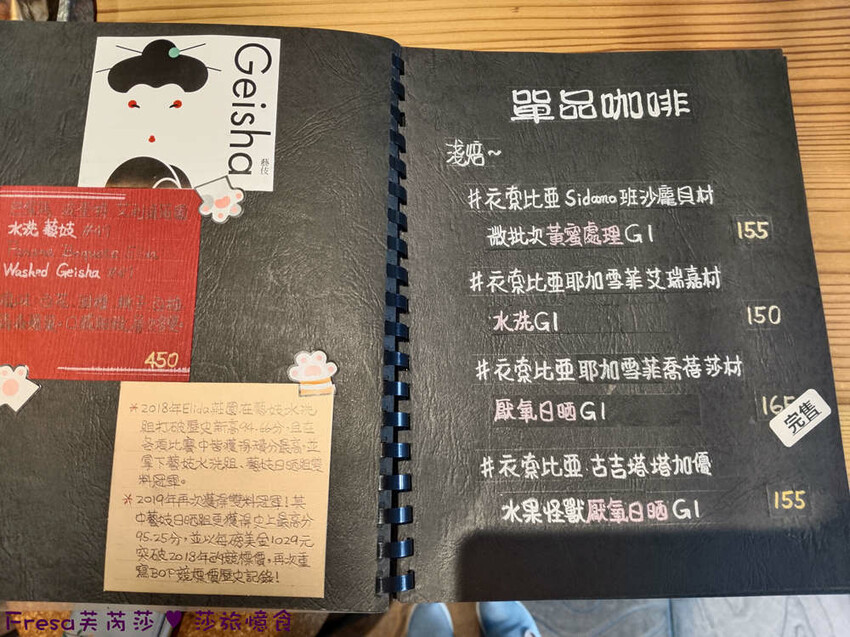 Geisha
藝伎
水洗 藝妓 #41
Washed Geisha #41
450
*2018年Elida莊園在藝妓水洗
組打破歷史新高94.66分,且在
各項比賽中皆獲得積分最高,並
拿下藝妓水洗組、藝妓日晒組雙
料冠軍。
*2019年再次獲得雙料冠軍!其
中藝妓日晒組更獲得史上最高分
95.25分,並以每磅美金1029元
突破2018年的競標價,再次重
寫BOP競標價歷史記錄!
單品咖啡
淺焙~
#衣索比亞 Sidamo班沙龐貝村
微批次黃蜜處理G1 155
#衣索比亞耶加雪菲艾瑞嘉村
水洗G1 150
#衣索比亞耶加雪菲喬蓓莎村
厭氧日晒G1 165
完售
#衣索比亞 古吉塔塔加優
水果怪獸厭氧日晒G1 155
Fresa芙芮莎 ♥ 莎旅憶食